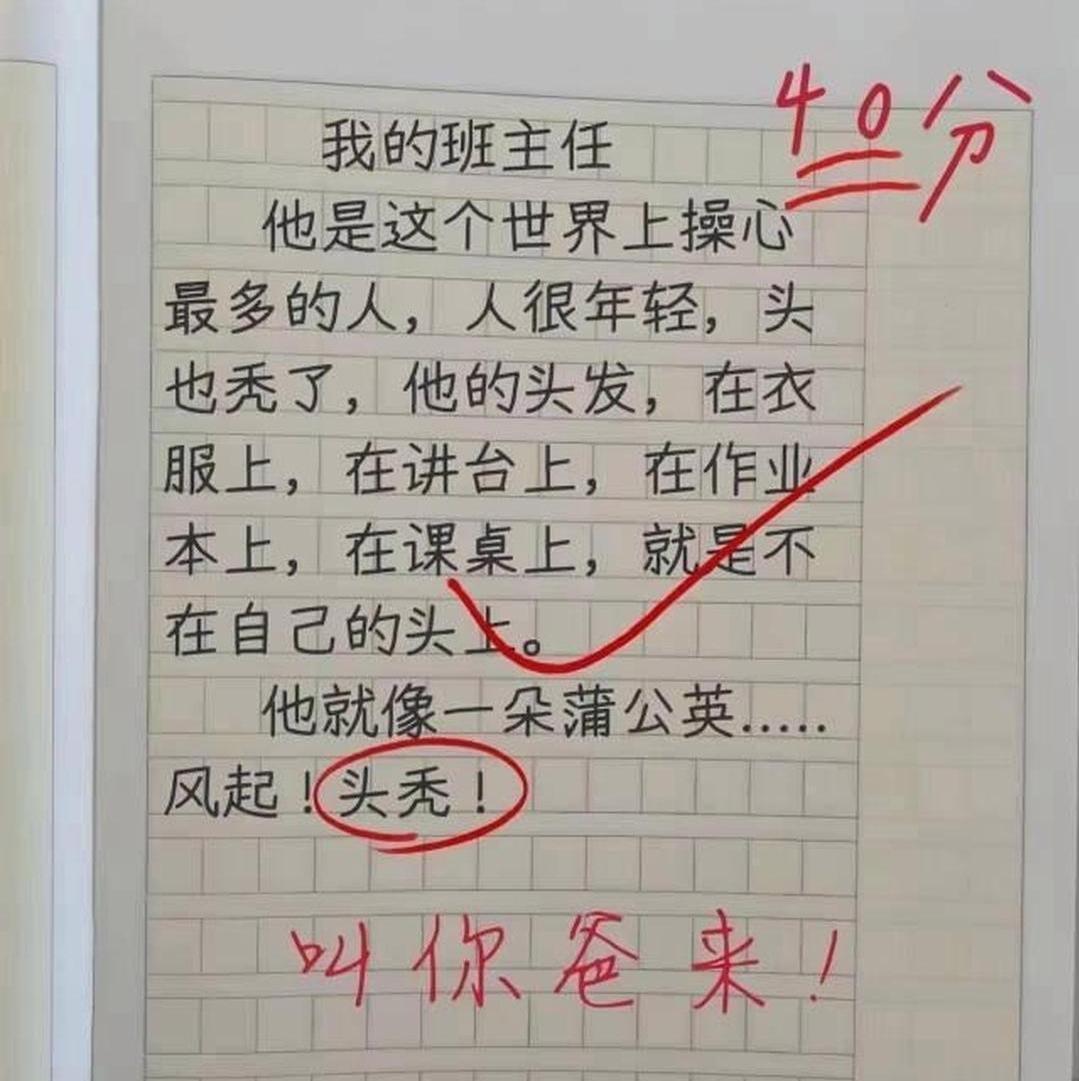 40分
我的班主任
他是这个世界上操心
最多的人，人很年轻，头
也秃了，他的头发，在衣
服上，在讲台上，在作业
本上，在课桌上，就是不
在自己的头上。
他就像一朵蒲公英.....
风起！头秃！
叫你爸来！